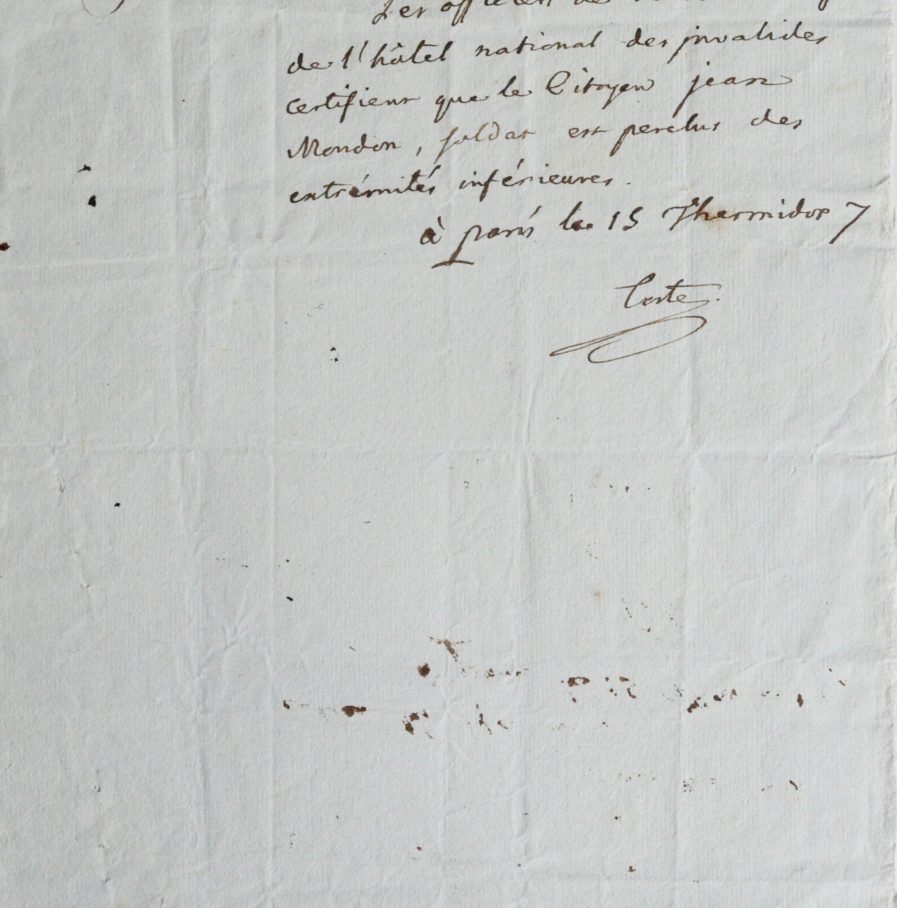 Les officiers de
de l'hôtel national des invalides
certifient que le Citoyen jean
Mondon, soldat est perclus des
extrémités inférieures.
à paris le 15 Thermidor 7
Coste